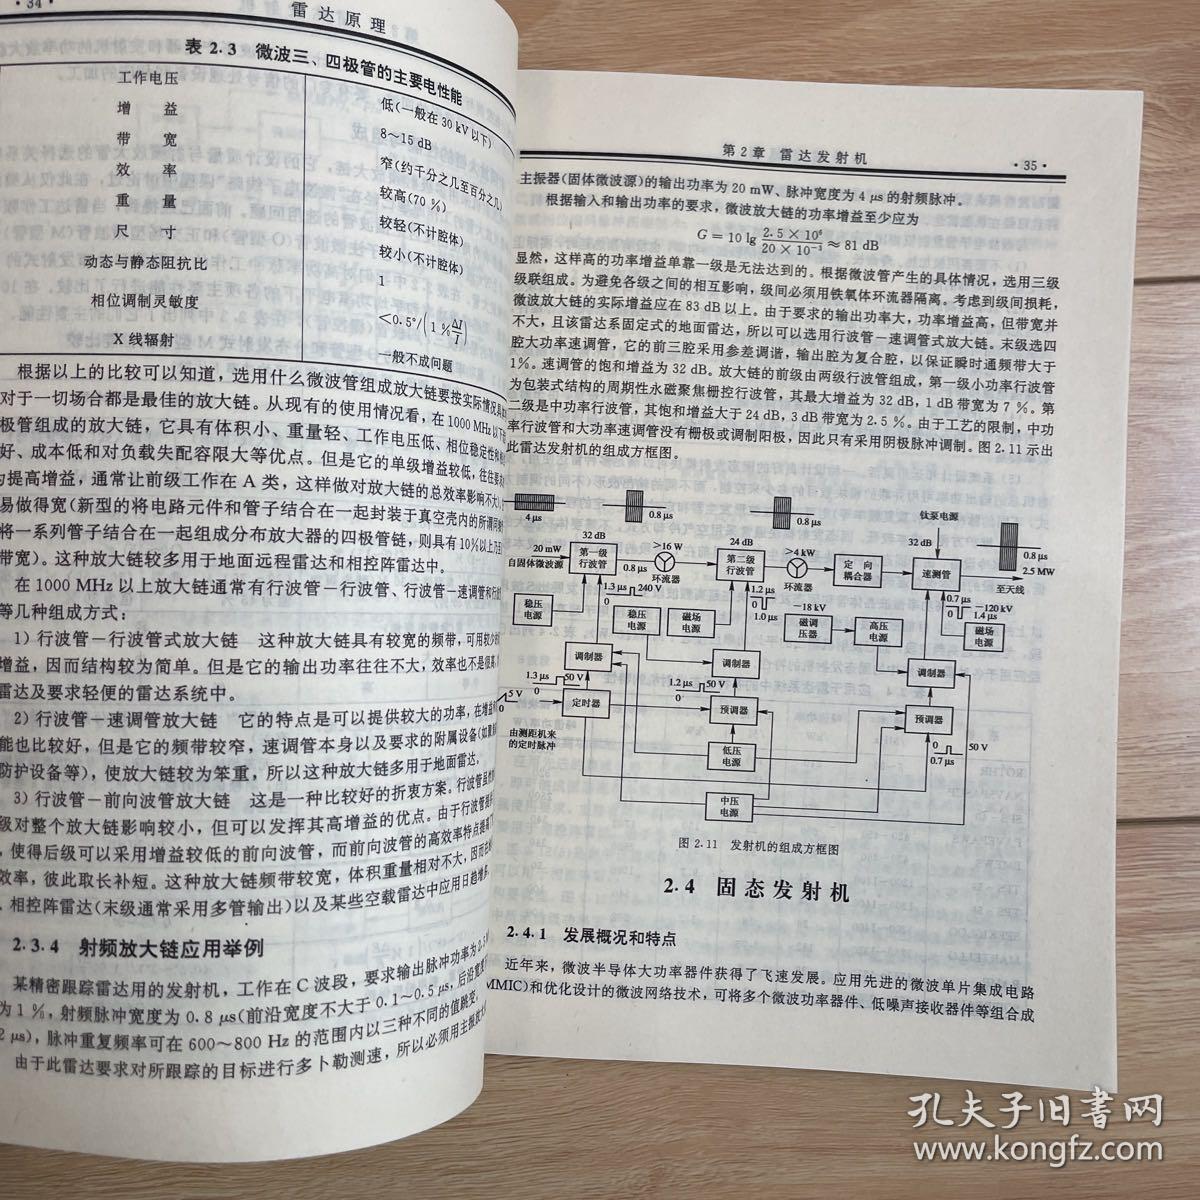 · 34 ·
雷达原理
表 2.3 微波三、四极管的主要电性能
工作电压
低(一般在 30 kV以下)
增 益
8～15 dB
带 宽
窄(约千分之几至百分之几)
效 率
较高(70 %)
重 量
较轻(不计腔体)
尺 寸
较小(不计腔体)
动态与静态阻抗比
1
相位调制灵敏度
<0.5°/(1 % Δf/f)
X 线辐射
一般不成问题
根据以上的比较可以知道，选用什么微波管组成放大链要按实际情况
对于一切场合都是最佳的放大链。从现有的使用情况看，在 1000 MHz 以下
极管组成的放大链，它具有体积小、重量轻、工作电压低、相位稳定性
好、成本低和对负载失配容限大等优点。但是它的单级增益较低，往往
提高增益，通常让前级工作在 A 类，这样做对放大链的总效率影响不大
易做得宽(新型的将电路元件和管子结合在一起封装于真空壳内的所谓
将一系列管子结合在一起组成分布放大器的四极管链，则具有 10%以上
带宽)。这种放大链较多用于地面远程雷达和相控阵雷达中。
在 1000 MHz 以上放大链通常有行波管－行波管、行波管－速调管和
等几种组成方式：
1) 行波管－行波管式放大链 这种放大链具有较宽的频带，可用较少
增益，因而结构较为简单。但是它的输出功率往往不大，效率也不是很高，
雷达及要求轻便的雷达系统中。
2) 行波管－速调管放大链 它的特点是可以提供较大的功率，在增益
能也比较好，但是它的频带较窄，速调管本身以及要求的附属设备(如
防护设备等)，使放大链较为笨重，所以这种放大链多用于地面雷达。
3) 行波管－前向波管放大链 这是一种比较好的折衷方案。行波管虽然
级对整个放大链影响较小，但可以发挥其高增益的优点。由于行波管
，使得后级可以采用增益较低的前向波管，而前向波管的高效率特点提高了
效率，彼此取长补短。这种放大链频带较宽，体积重量相对不大，因而
相控阵雷达(末级通常采用多管输出)以及某些空载雷达中应用日趋增多。
2.3.4 射频放大链应用举例
某精密跟踪雷达用的发射机，工作在 C 波段，要求输出脉冲功率为 2.5
为 1 %，射频脉冲宽度为 0.8 μs(前沿宽度不大于 0.1～0.5 μs，后沿宽度
2 μs)，脉冲重复频率可在 600～800 Hz 的范围内以三种不同的值跳变，
由于此雷达要求对所跟踪的目标进行多卜勒测速，所以必须用主振放大
第 2 章 雷达发射机
· 35 ·
主振器(固体微波源)的输出功率为 20 mW、脉冲宽度为 4 μs 的射频脉冲。
根据输入和输出功率的要求，微波放大链的功率增益至少应为
G = 10 lg 2.5 × 10⁶ / 20 × 10⁻³ ≈ 81 dB
显然，这样高的功率增益单靠一级是无法达到的。根据微波管产生的具体情况，选用三级
级联组成。为避免各级之间的相互影响，级间必须用铁氧体环流器隔离。考虑到级间损耗，
微波放大链的实际增益应在 83 dB 以上。由于要求的输出功率大，功率增益高，但带宽并
不大，且该雷达系固定式的地面雷达，所以可以选用行波管－速调管式放大链。末级选四
腔大功率速调管，它的前三腔采用参差调谐，输出腔为复合腔，以保证瞬时通频带大于
1%。速调管的饱和增益为 32 dB。放大链的前级由两级行波管组成，第一级小功率行波管
为包装式结构的周期性永磁聚焦栅控行波管，其最大增益为 32 dB，1 dB 带宽为 7 %。第
二级是中功率行波管，其饱和增益大于 24 dB，3 dB 带宽为 2.5 %。由于工艺的限制，中功
率行波管和大功率速调管没有栅极或调制阳极，因此只有采用阴极脉冲调制。图 2.11 示出
此雷达发射机的组成方框图。
4 μs
0.8 μs
0.8 μs
钛泵电源
0.8 μs
2.5 MW
至天线
20 mW
自固体微波源
32 dB
第一级
行波管
0.8 μs
>16 W
环流器
24 dB
第二级
行波管
>4 kW
环流器
定 向
耦合器
32 dB
速调管
稳压
电源
1.3 μs
240 V
0
稳压
电源
磁场
电源
1.2 μs
0
1.0 μs
−18 kV
磁调
压器
高压
电源
0.7 μs
0
−120 kV
1.4 μs
磁场
电源
调制器
调制器
调制器
1.3 μs
50 V
0
1.2 μs
50 V
0
5 V
0
定时器
预调器
预调器
由测距机来
的定时脉冲
低压
电源
0
50 V
0.7 μs
中压
电源
图 2.11 发射机的组成方框图
2.4 固态发射机
2.4.1 发展概况和特点
近年来，微波半导体大功率器件获得了飞速发展。应用先进的微波单片集成电路
MMIC)和优化设计的微波网络技术，可将多个微波功率器件、低噪声接收器件等组合成
孔夫子旧书网
www.kongfz.com